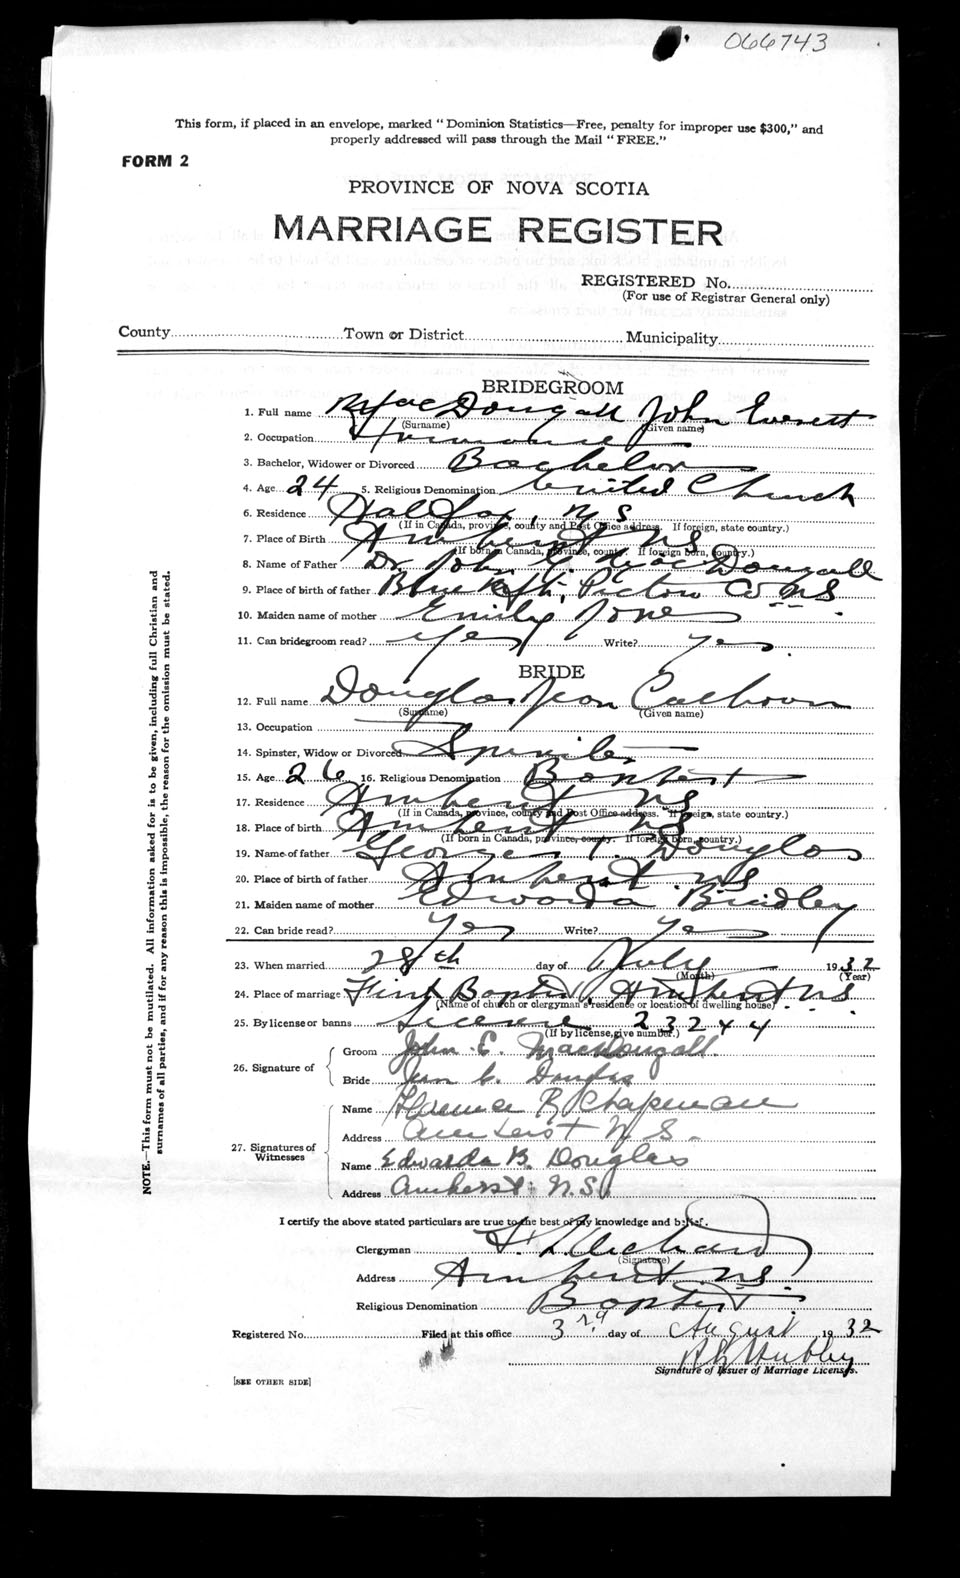 066743
This form, if placed in an envelope, marked "Dominion Statistics—Free, penalty for improper use $300," and
properly addressed will pass through the Mail "FREE."
FORM 2
PROVINCE OF NOVA SCOTIA
MARRIAGE REGISTER
REGISTERED No.
(For use of Registrar General only)
County Town or District Municipality
BRIDEGROOM
1. Full name MacDougall John Everett
(Surname) (Given name)
2. Occupation
3. Bachelor, Widower or Divorced Bachelor
4. Age 24 5. Religious Denomination United Church
6. Residence Halifax, N S
(If in Canada, province, county and Post Office address. If foreign, state country.)
7. Place of Birth Amherst N S
(If born in Canada, province, county. If foreign born, country.)
8. Name of Father Dr. John G. MacDougall
9. Place of birth of father Blue Mt, Pictou Co N S
10. Maiden name of mother Emily Jones
11. Can bridegroom read? Yes Write? Yes
BRIDE
12. Full name Douglas Jean Calhoun
(Surname) (Given name)
13. Occupation
14. Spinster, Widow or Divorced Spinster
15. Age 26 16. Religious Denomination Baptist
17. Residence Amherst N S
(If in Canada, province, county and Post Office address. If foreign, state country.)
18. Place of birth Amherst N S
(If born in Canada, province, county. If foreign born, country.)
19. Name of father George T. Douglas
20. Place of birth of father Amherst N S
21. Maiden name of mother Edwarda Bradley
22. Can bride read? Yes Write? Yes
23. When married 28th day of July 1932
(Month) (Year)
24. Place of marriage First Baptist, Amherst N S
(Name of church or clergyman's residence or location of dwelling house)
25. By license or banns License 23244
(If by license, give number.)
26. Signature of
Groom John E. MacDougall.
Bride Jean C. Douglas
27. Signatures of Witnesses
Name Florence R Chapman
Address Amherst N. S.
Name Edwarda B. Douglas
Address Amherst N.S.
I certify the above stated particulars are true to the best of my knowledge and belief.
Clergyman
(Signature)
Address Amherst N.S.
Religious Denomination Baptist
Registered No. Filed at this office 3rd day of August 1932
Signature of Issuer of Marriage Licenses.
[SEE OTHER SIDE]
NOTE.—This form must not be mutilated. All information asked for is to be given, including full Christian and
surnames of all parties, and if for any reason this is impossible, the reason for the omission must be stated.